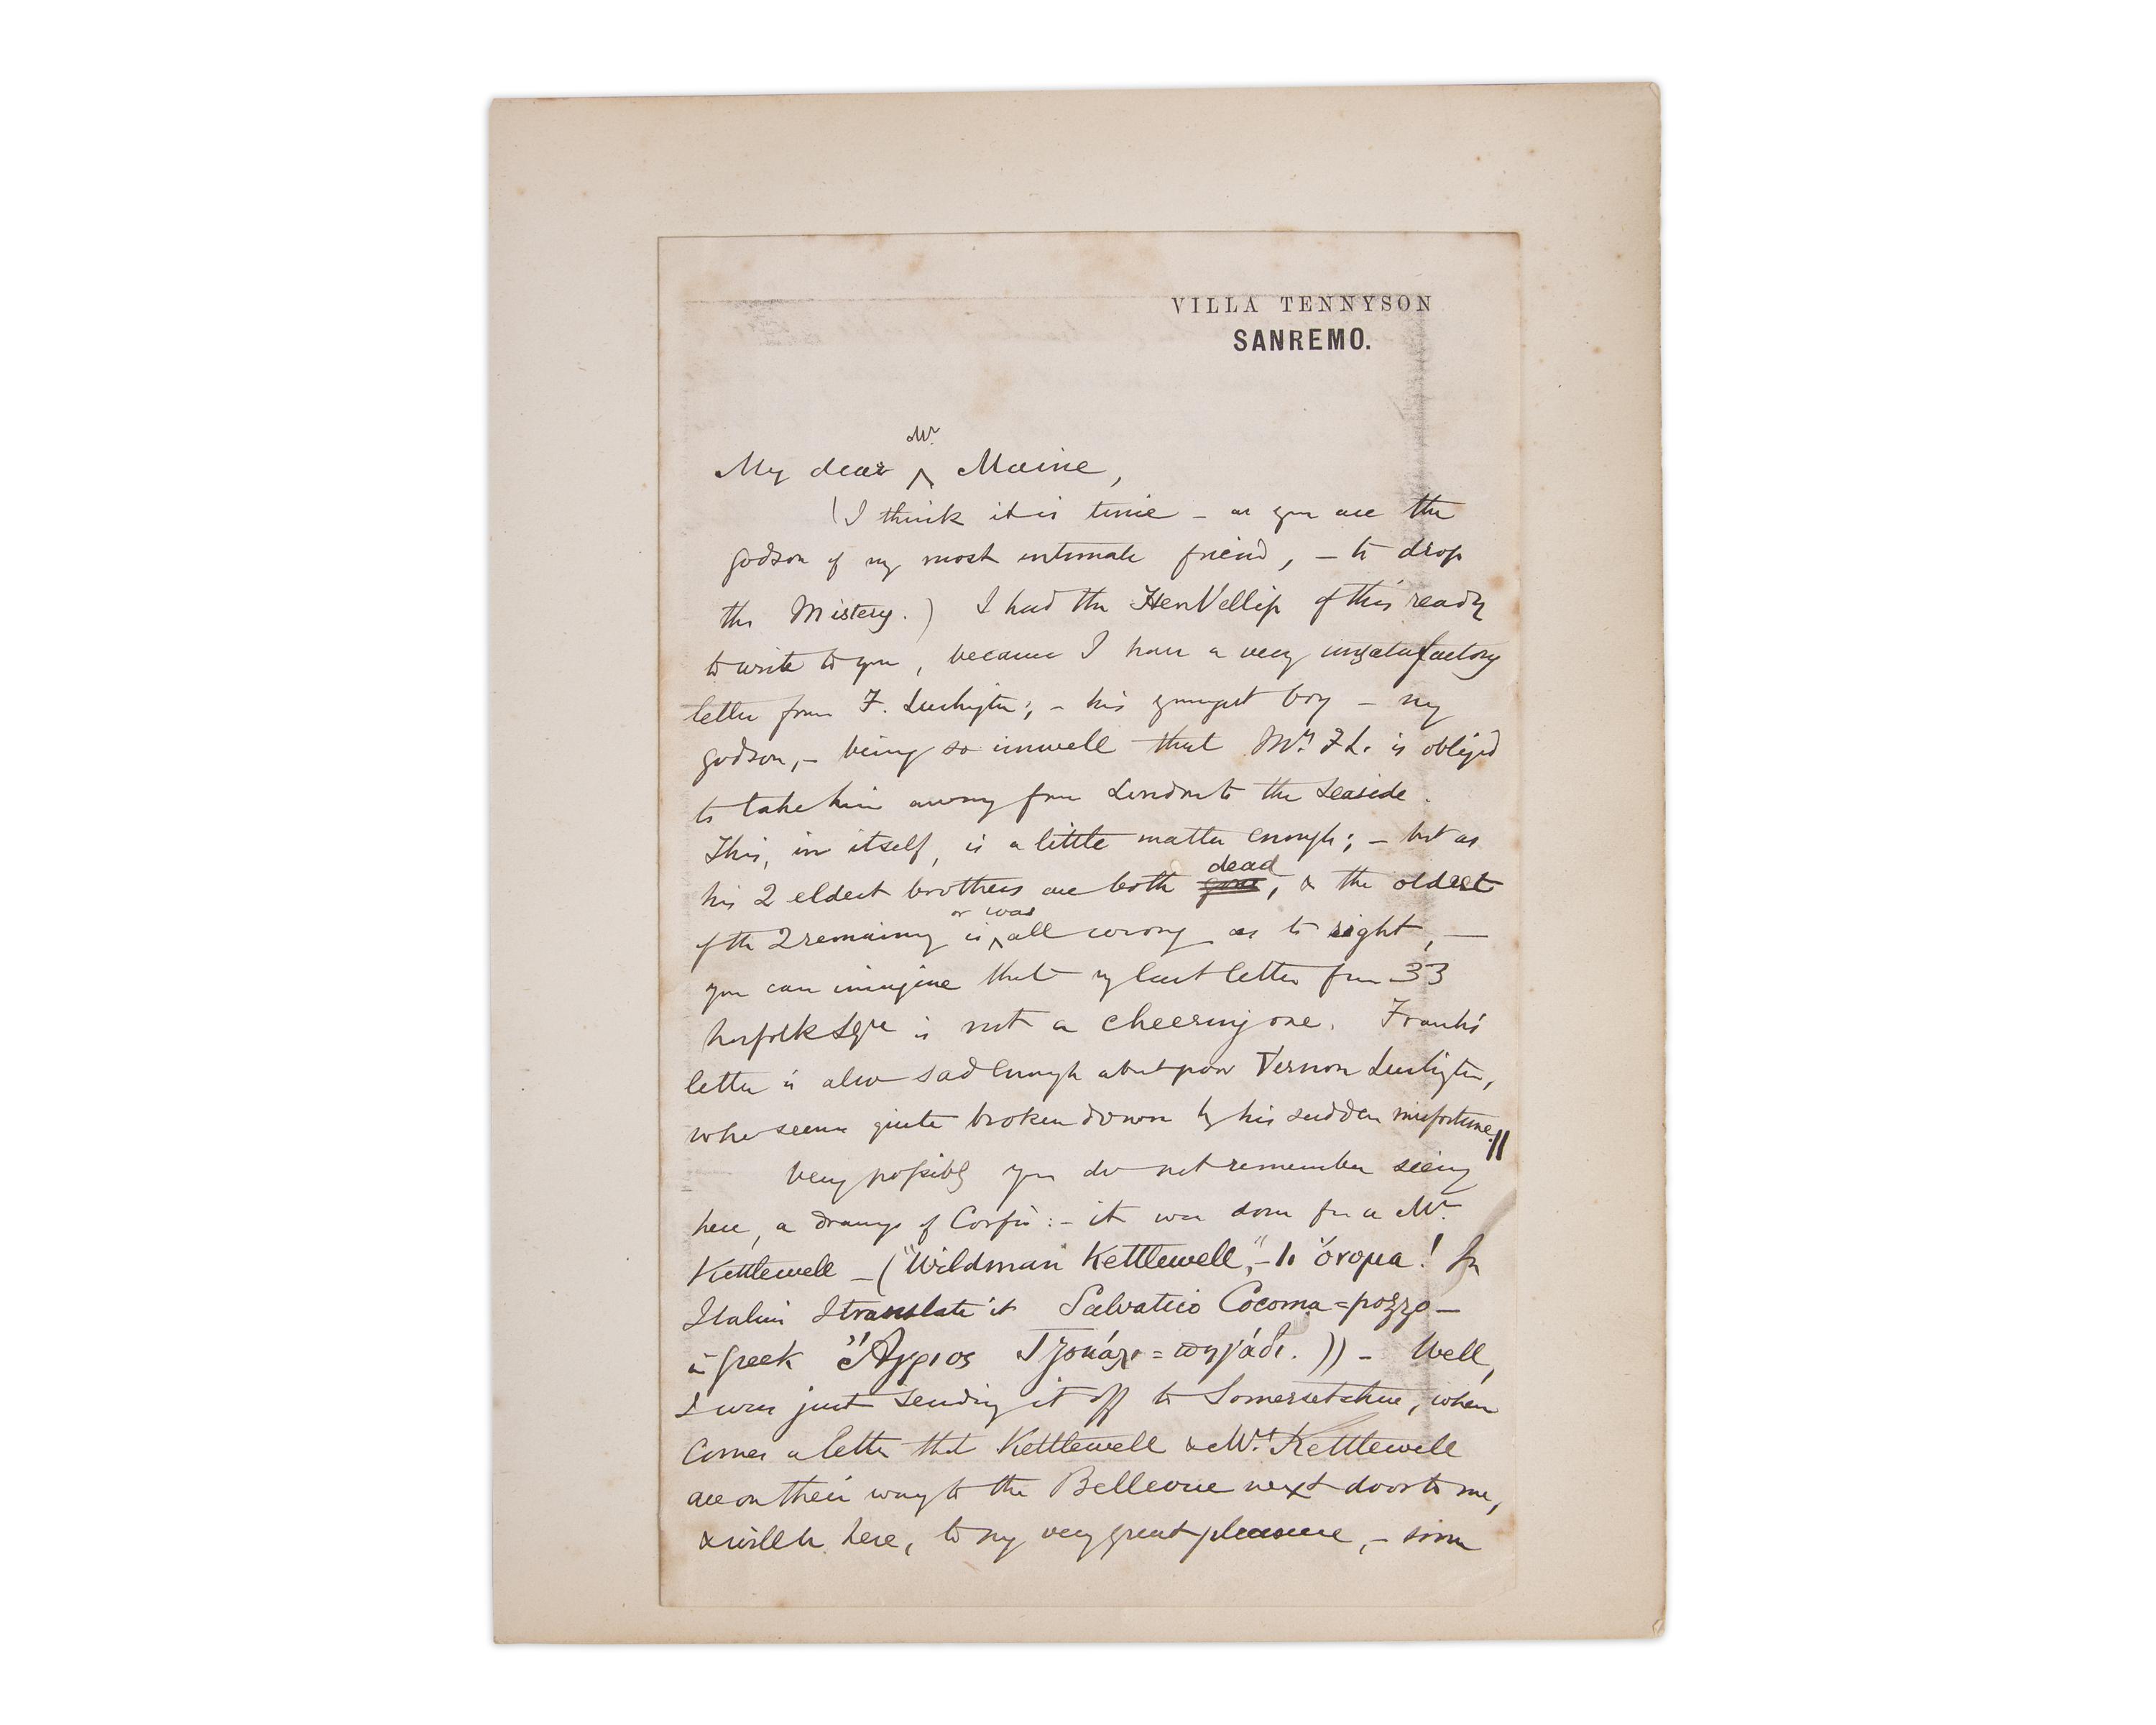 VILLA TENNYSON
SANREMO.
Mr.
My dear ^ Maine,
(I think it is time – as you are the
godson of my most intimate friend, – to drop
the Mistery.) I had the HenVellip of this ready
to write to you, because I have a very unsatisfactory
letter from F. Lushington; – his youngest boy – my
godson, – being so unwell that Mrs. F L. is obliged
to take him away from London to the Seaside.
This, in itself, is a little matter enough; – but as
dead
his 2 eldest brothers are both gone, & the oldest
or was
of the 2 remaining is ^ all wrong as to sight, —
you can imagine that my last letter from 33
Norfolk Sqre is not a cheering one. Frank's
letter is also sad enough about poor Vernon Lushington,
who seems quite broken down by his sudden misfortune. //
Very possibly you do not remember seeing
here, a drawing of Corfû: – it was done for a Mr.
Kettlewell – ("Wildman Kettlewell," – τι ὄνομα! In
Italian I translate it Salvatico Cocoma = pozzo —
in Greek Ἄγριος = πηγάδι.)) – Well,
I was just sending it off to Somersetshire, when
comes a letter that Kettlewell & Mrs. Kettlewell
are on their way to the Bellevue next door to me,
& will be here, to my very great pleasure, – some